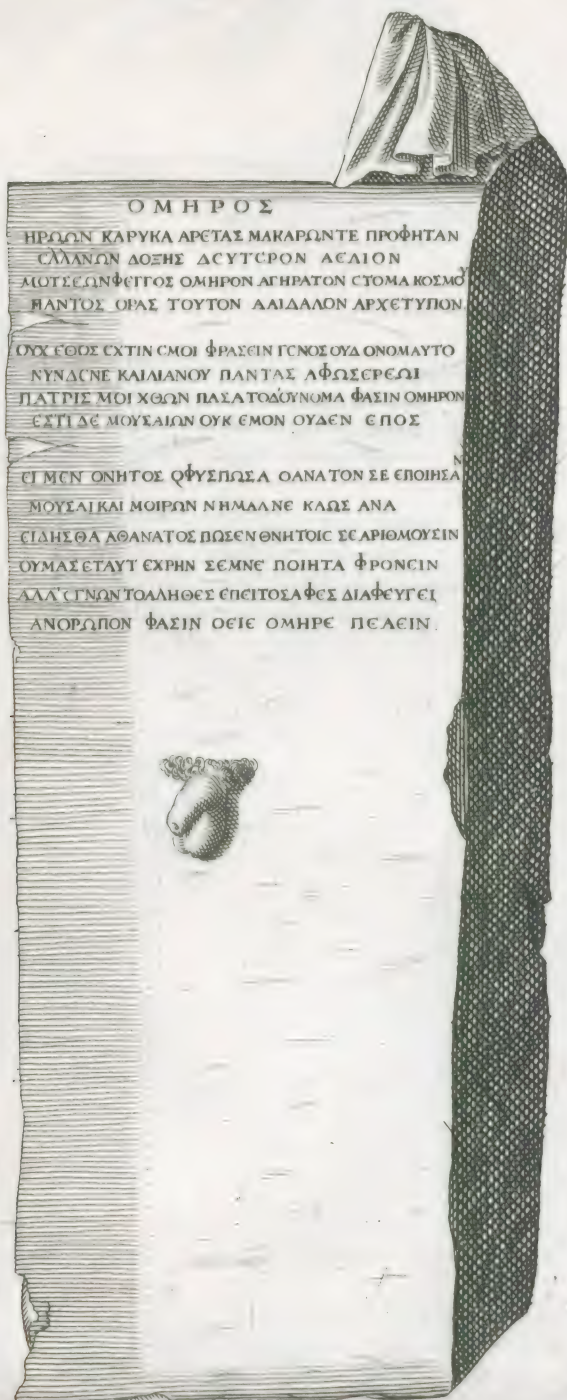 ΟΜΗΡΟΣ
ΗΡΩΩΝ ΚΑΡΥΚΑ ΑΡΕΤΑΣ ΜΑΚΑΡΩΝΤΕ ΠΡΟΦΗΤΑΝ
ЄΛΛΑΝΩΝ ΔΟΞΗΣ ΔЄΥΤЄΡΟΝ ΑЄΛΙΟΝ
ΜΟΤΣЄΩΝΦЄΓΓΟΣ ΟΜΗΡΟΝ ΑΓΗΡΑΤΟΝ СΤΟΜΑ ΚΟΣΜΟΥ
ΠΑΝΤΟΣ ΟΡΑΣ ΤΟΥΤΟΝ ΔΑΙΔΑΛΟΝ ΑΡΧЄΤΥΠΟΝ.
ΟΥΧ ЄΘΟΣ ЄΧΤΙΝ ЄΜΟΙ ΦΡΑΣЄΙΝ ΓЄΝΟΣ ΟΥΔ ΟΝΟΜΑΥΤΟ
ΝΥΝΔЄΝЄ ΚΑΙΛΙΑΝΟΥ ΠΑΝΤΑΣ ΑΦΩΣЄΡЄΩΙ
ΠΑΤΡΙΣ ΜΟΙ ΧΘΩΝ ΠΑΣΑΤΟΔ'ΟΥΝΟΜΑ ΦΑΣΙΝ ΟΜΗΡΟΝ
ЄΣΤΙ ΔЄ ΜΟΥΣΑΙΩΝ ΟΥΚ ЄΜΟΝ ΟΥΔЄΝ ЄΠΟΣ
ЄΙ ΜЄΝ ΟΝΗΤΟΣ ΟΦΥΣΠΩΣΑ ΟΑΝΑΤΟΝ ΣЄ ЄΠΟΙΗΣΑΝ
ΜΟΥΣΑΙ ΚΑΙ ΜΟΙΡΩΝ ΝΗΜΑΑΝЄ ΚΛΩΣ ΑΝΑ
ЄΙΔΗΣΘΑ ΑΘΑΝΑΤΟΣ ΠΩΣЄΝ ΘΝΗΤΟΙС ΣЄ ΑΡΙΘΜΟΥΣΙΝ
ΟΥΜΑΣ ЄΤΑΥΤ ЄΧΡΗΝ ΣЄΜΝЄ ΠΟΙΗΤΑ ΦΡΟΝЄΙΝ
ΑΛΛ'ЄΓΝΩΝ ΤΟΑΛΗΘЄΣ ЄΠЄΙΤΟΣΑΦЄΣ ΔΙΑΦЄΥΓЄΙ
ΑΝΟΡΩΠΟΝ ΦΑΣΙΝ ΟЄΙЄ ΟΜΗΡЄ ΠЄΛЄΙΝ.